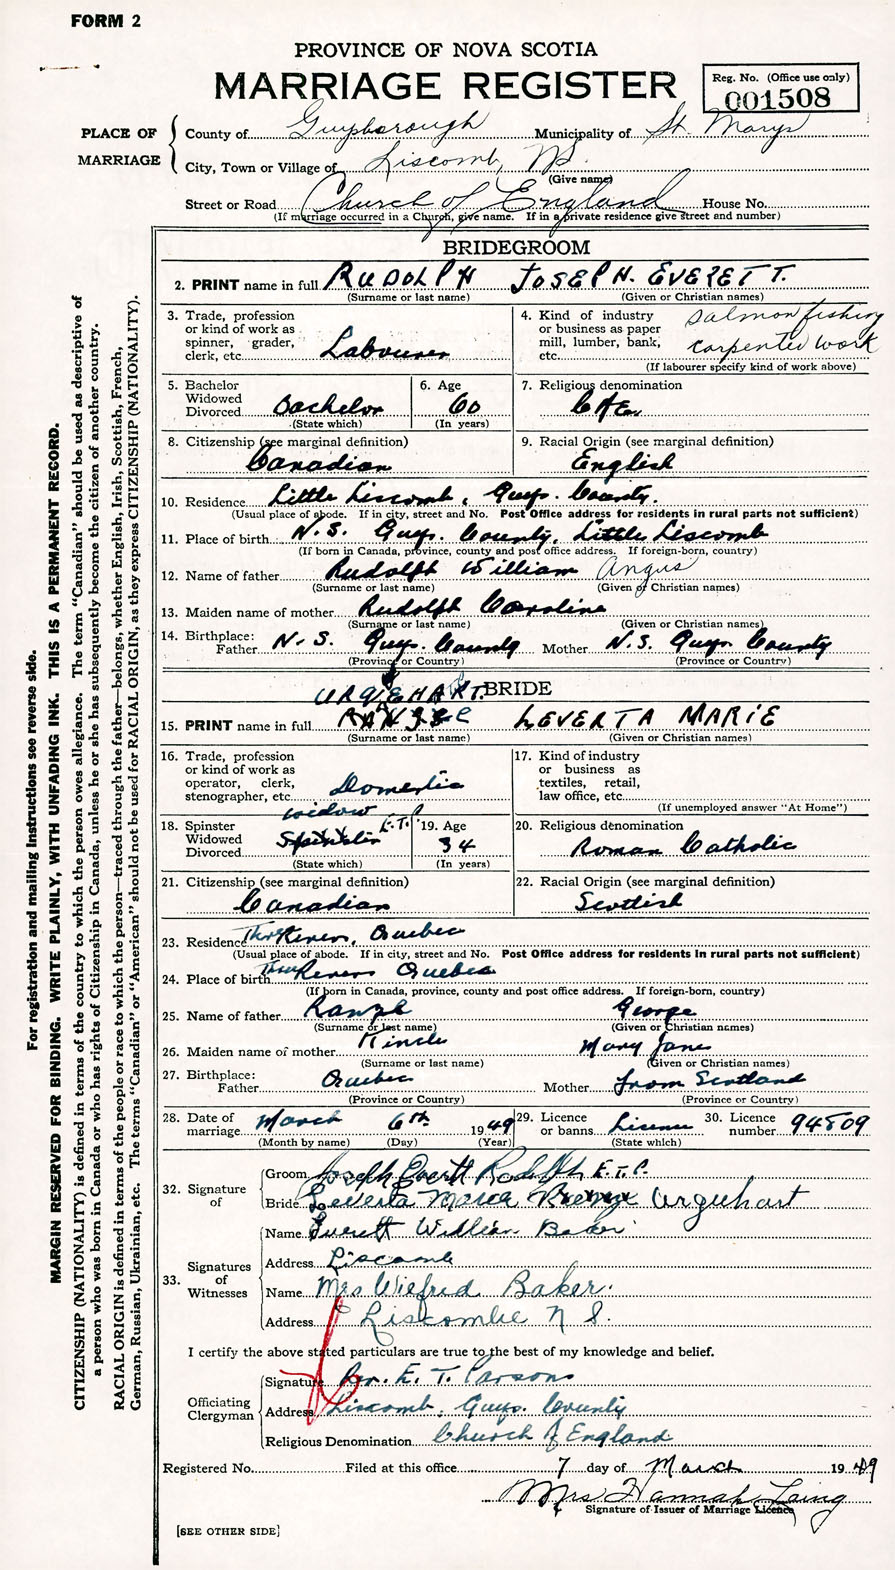 FORM 2
PROVINCE OF NOVA SCOTIA
MARRIAGE REGISTER
Reg. No. (Office use only)
001508
PLACE OF MARRIAGE
County of Guysborough Municipality of St. Marys
City, Town or Village of Liscomb, NS.
(Give name)
Street or Road Church of England House No.
(If marriage occurred in a Church, give name. If in a private residence give street and number)
BRIDEGROOM
2. PRINT name in full RUDOLPH JOSEPH. EVERETT.
(Surname or last name) (Given or Christian names)
3. Trade, profession or kind of work as spinner, grader, clerk, etc. Labourer
4. Kind of industry or business as paper mill, lumber, bank, etc. salmon fishing carpenter work
(If labourer specify kind of work above)
5. Bachelor Widowed Divorced Bachelor (State which)
6. Age 60 (In years)
7. Religious denomination C of E.
8. Citizenship (see marginal definition) Canadian
9. Racial Origin (see marginal definition) English
10. Residence Little Liscomb, Guys. County.
(Usual place of abode. If in city, street and No. Post Office address for residents in rural parts not sufficient)
11. Place of birth N.S. Guys. County, Little Liscomb
(If born in Canada, province, county and post office address. If foreign-born, country)
12. Name of father Rudolph William Angus
(Surname or last name) (Given or Christian names)
13. Maiden name of mother Rudolph Caroline
(Surname or last name) (Given or Christian names)
14. Birthplace: Father N.S. Guys. County Mother N.S. Guys. County
(Province or Country) (Province or Country)
URQUEHART.
BRIDE
15. PRINT name in full LEVERTA MARIE
(Surname or last name) (Given or Christian names)
16. Trade, profession or kind of work as operator, clerk, stenographer, etc. Domestic
17. Kind of industry or business as textiles, retail, law office, etc.
(If unemployed answer "At Home")
widow E.T.P.
18. Spinster Widowed Divorced Spinster (State which)
19. Age 34 (In years)
20. Religious denomination Roman Catholic
21. Citizenship (see marginal definition) Canadian
22. Racial Origin (see marginal definition) Scottish
23. Residence Three Rivers, Quebec
(Usual place of abode. If in city, street and No. Post Office address for residents in rural parts not sufficient)
24. Place of birth Three Rivers Quebec
(If born in Canada, province, county and post office address. If foreign-born, country)
25. Name of father George
(Surname or last name) (Given or Christian names)
26. Maiden name of mother Kincle Mary Jane
(Surname or last name) (Given or Christian names)
27. Birthplace: Father Quebec Mother from Scotland
(Province or Country) (Province or Country)
28. Date of marriage March 6th 1949
(Month by name) (Day) (Year)
29. Licence or banns License (State which)
30. Licence number 94809
32. Signature of
Groom Joseph Everett Rudolph E.T.P.
Bride Leverta Maria Urquhart
33. Signatures of Witnesses
Name Everett William Baker
Address Liscomb
Name Mrs Wilfred Baker.
Address Liscombe N S.
I certify the above stated particulars are true to the best of my knowledge and belief.
Officiating Clergyman
Signature Rev. E. T. Parsons
Address Liscomb, Guys. County
Religious Denomination Church of England
Registered No. Filed at this office 7 day of March 1949
Mrs Hannah Laing
Signature of Issuer of Marriage Licence
[SEE OTHER SIDE]
For registration and mailing instructions see reverse side.
MARGIN RESERVED FOR BINDING. WRITE PLAINLY, WITH UNFADING INK. THIS IS A PERMANENT RECORD.
CITIZENSHIP (NATIONALITY) is defined in terms of the country to which the person owes allegiance. The term "Canadian" should be used as descriptive of
a person who was born in Canada or who has rights of Citizenship in Canada, unless he or she has subsequently become the citizen of another country.
RACIAL ORIGIN is defined in terms of the people or race to which the person—traced through the father—belongs, whether English, Irish, Scottish, French,
German, Russian, Ukrainian, etc. The terms "Canadian" or "American" should not be used for RACIAL ORIGIN, as they express CITIZENSHIP (NATIONALITY).